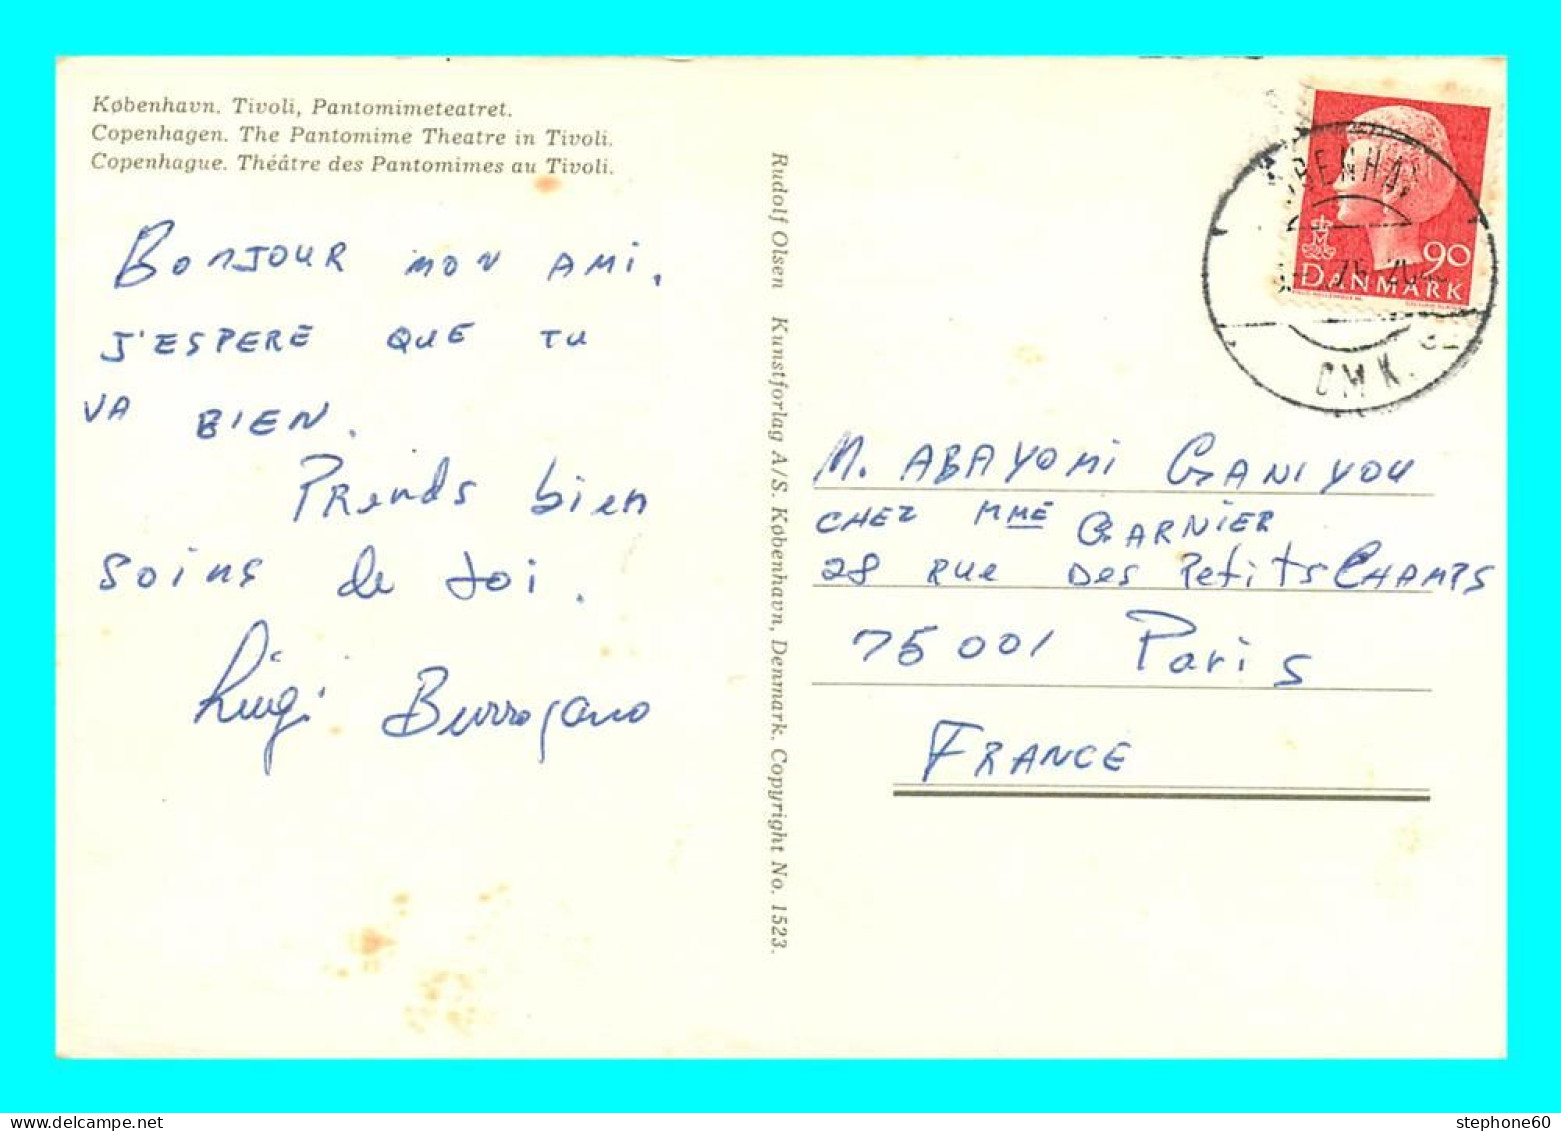 København. Tivoli, Pantomimeteatret.
Copenhagen. The Pantomime Theatre in Tivoli.
Copenhague. Théâtre des Pantomimes au Tivoli.
BONJOUR MON AMI.
J'ESPERE QUE TU
VA BIEN.
PRends bien
soins de toi.
Luigi Burrogano
Rudolf Olsen Kunstforlag A/S. København, Denmark. Copyright No. 1523.
90
DANMARK
DMK.
M. ABAYOMI GANIYOU
CHEZ MME GARNIER
28 RUe Des PetitS CHAMPS
75001 Paris
FRANCE
stephone60